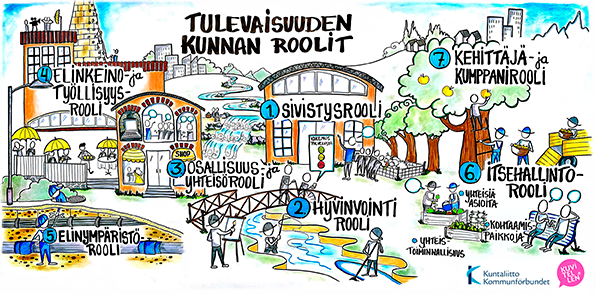 TULEVAISUUDEN
KUNNAN ROOLIT
1 SIVISTYSROOLI
2 HYVINVOINTI
ROOLI
3 OSALLISUUS- ja
YHTEISÖROOLI
4 ELINKEINO- ja
TYÖLLISYYS-
ROOLI
5 ELINYMPÄRISTÖ-
ROOLI
6 ITSEHALLINTO-
ROOLI
YHTEISIÄ
ASIOITA
KOHTAAMIS
PAIKKOJA
YHTEIS
TOIMINNALLISUUS
7 KEHITTÄJÄ- ja
KUMPPANIROOLI
SHOP
Kuntaliitto
Kommunförbundet
KUVI
TEL
LEN